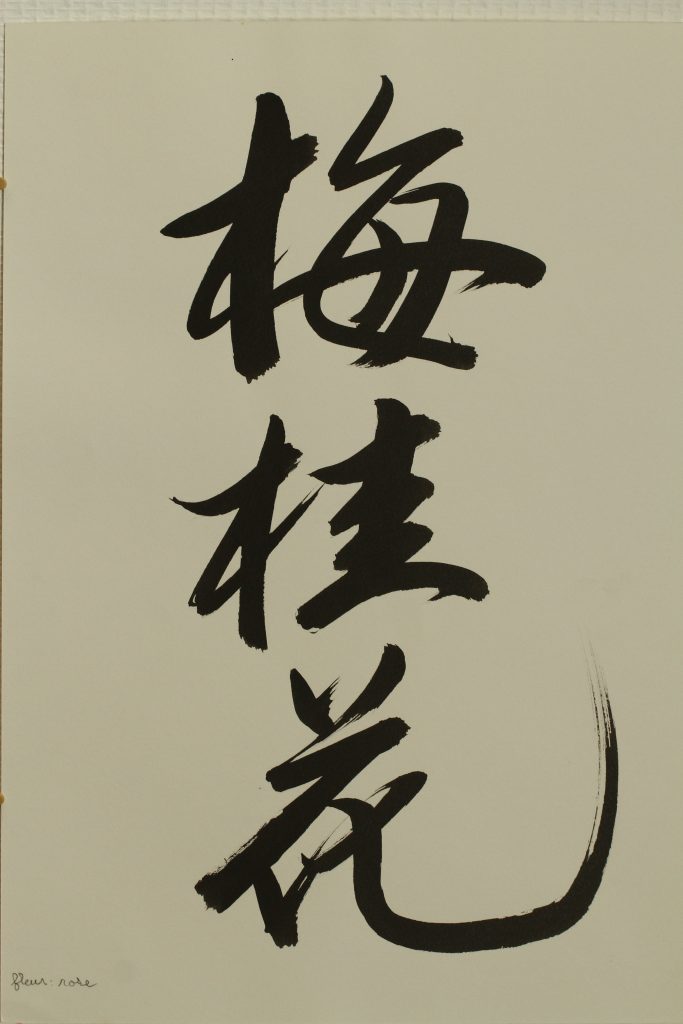 梅桂花
fleur: rose